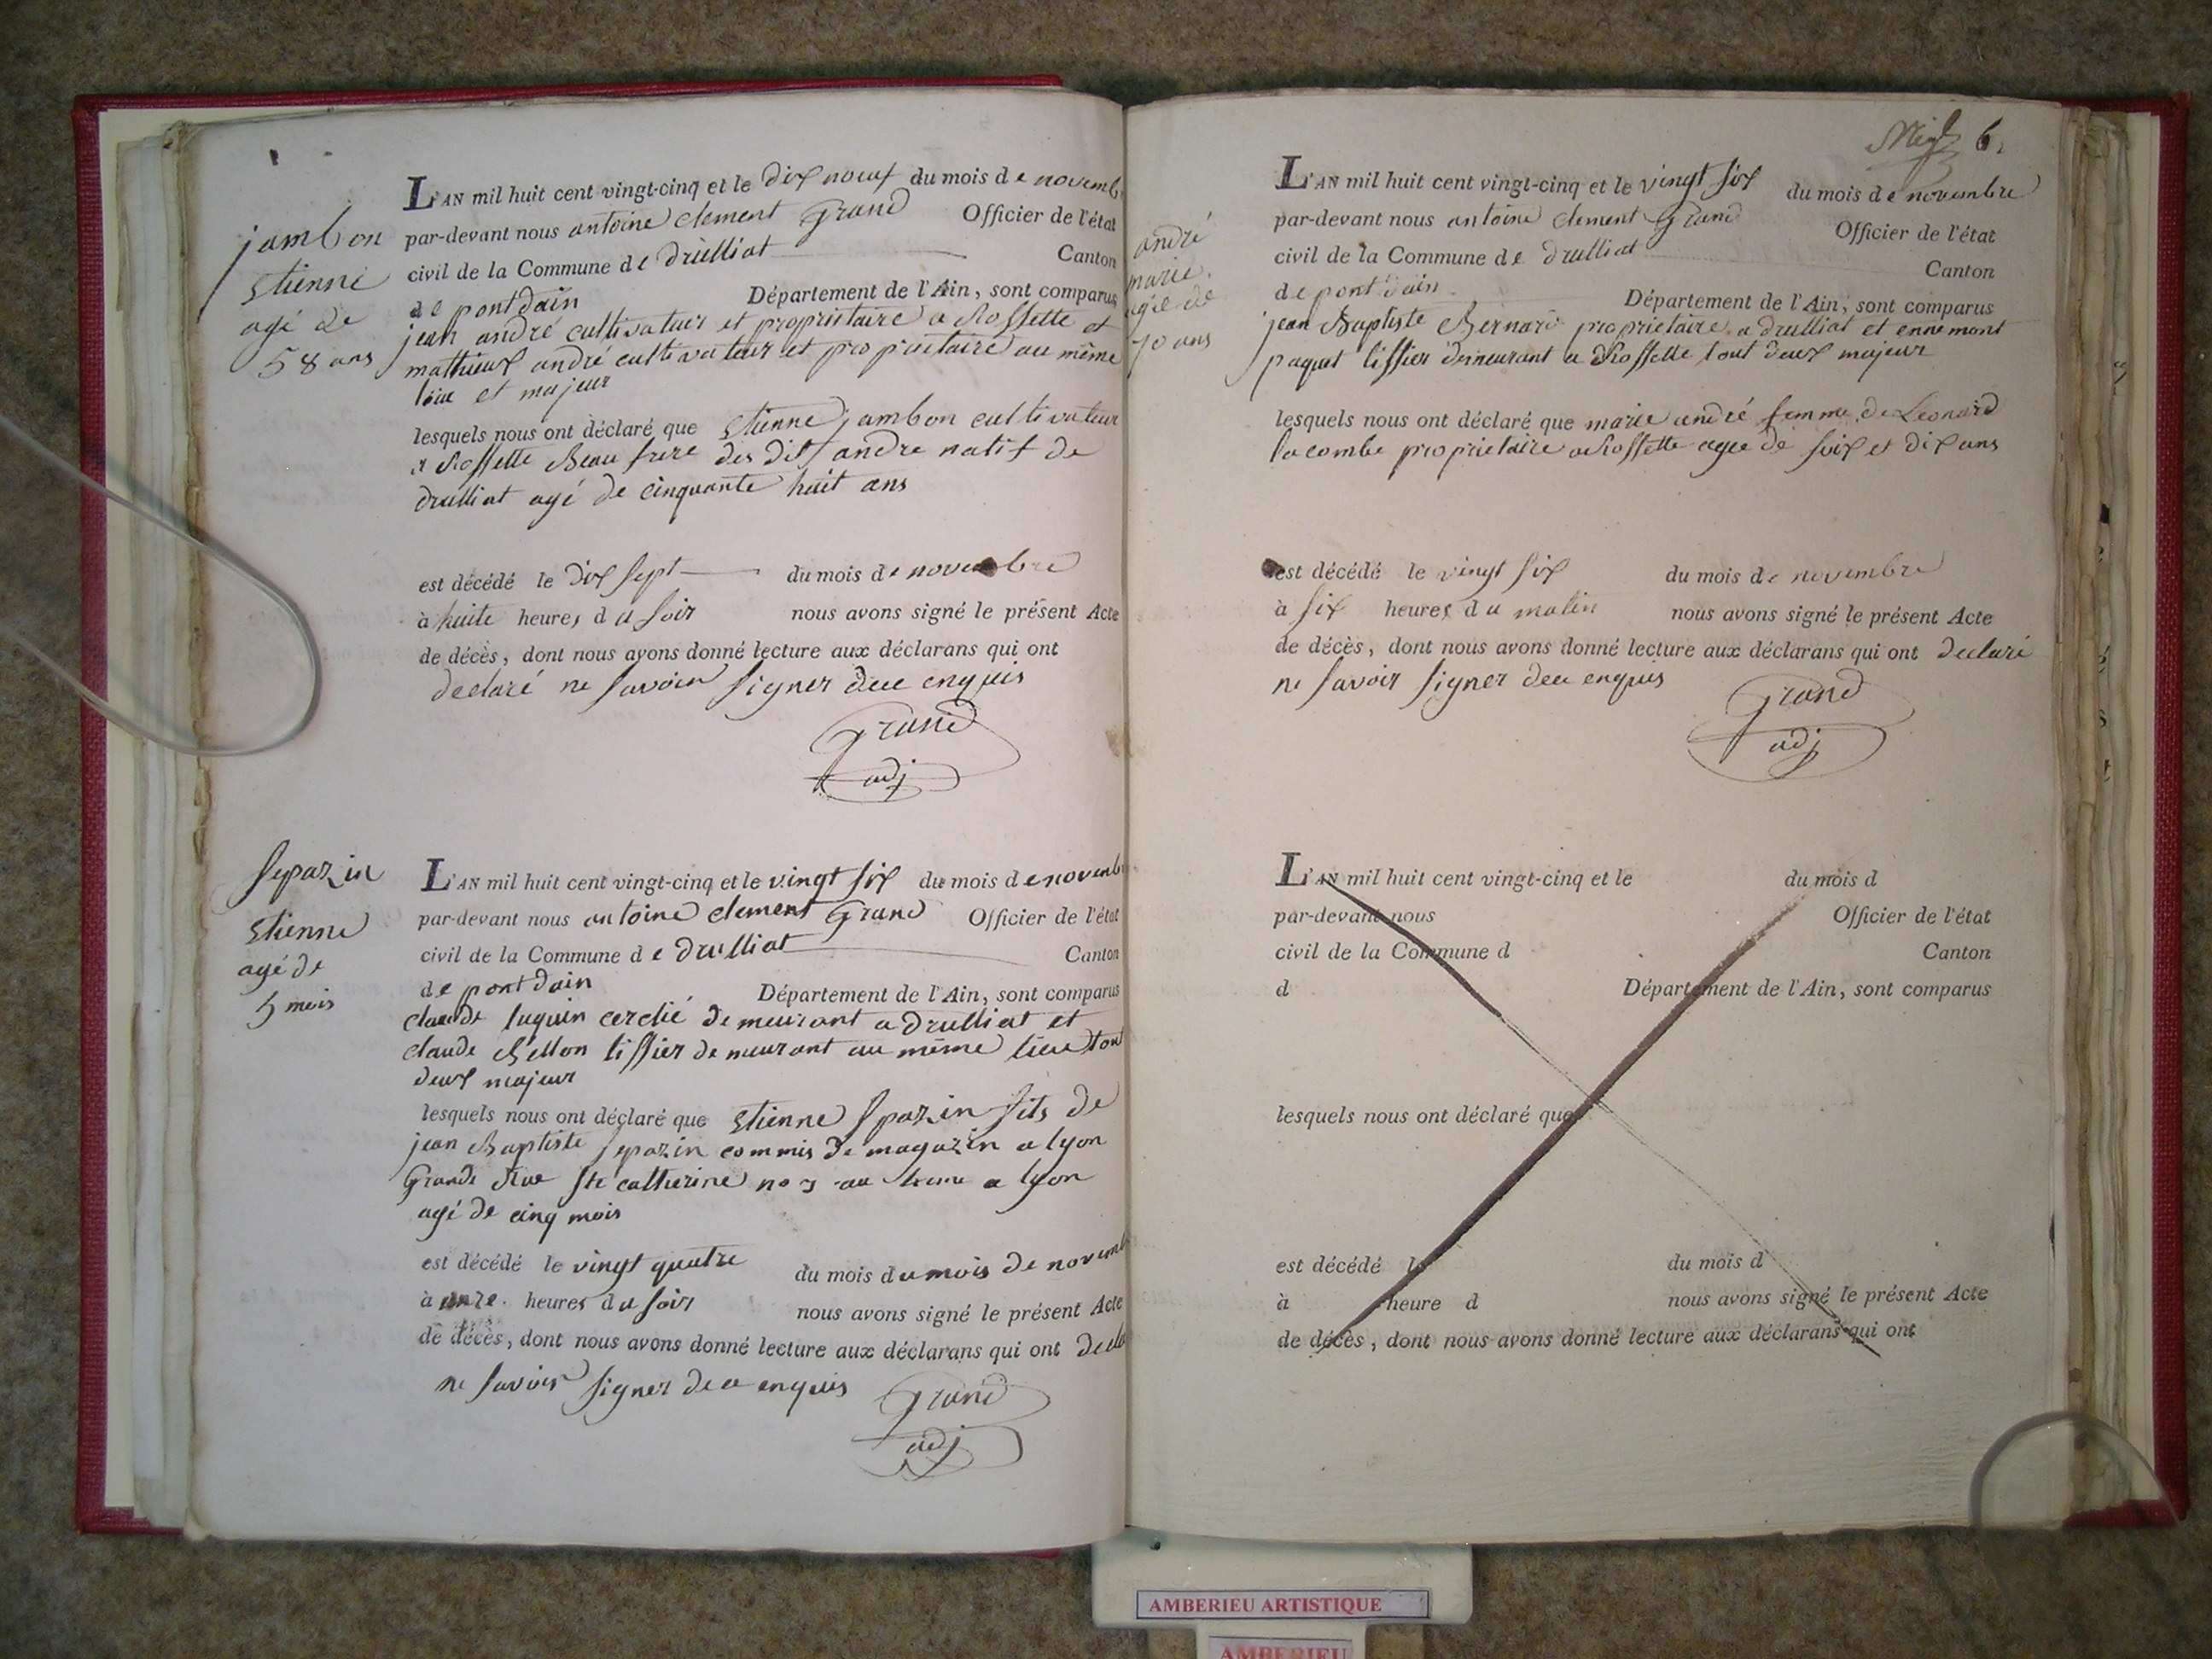 jambon
Etienne
agé de
58 ans
L'AN mil huit cent vingt-cinq et le dix neuf du mois de novemb
par-devant nous antoine clement Grand Officier de l'état
civil de la Commune de druilliat Canton
de pont dain Département de l'Ain, sont comparus
jean andré cultivateur et proprietaire a Rossette et
mathieux andré cultivateur et proprietaire au même
lieu et majeur
lesquels nous ont déclaré que Etienne jambon cultivateur
a Rossette Beau frere des dits andre natif de
drulliat agé de cinquante huit ans
est décédé le dix sept du mois de novembre
à huite heures du soir nous avons signé le présent Acte
de décès, dont nous avons donné lecture aux déclarans qui ont
declaré ne savoir signer de ce enquis
Grand
adj
sepazin
Etienne
agé de
5 mois
L'AN mil huit cent vingt-cinq et le vingt six du mois de novemb
par-devant nous antoine clement Grand Officier de l'état
civil de la Commune de drulliat Canton
de pont dain Département de l'Ain, sont comparus
claude luquin demeurant a drulliat et
claude tissier demeurant au même lieu tout
deux majeur
lesquels nous ont déclaré que Etienne spazin fils de
jean Baptiste sepazin commis de magazin a lyon
Grande Rue Ste catherine no 3 a lyon
agé de cinq mois
est décédé le vingt quatre du mois du mois de novemb
à onze heures du soir nous avons signé le présent Acte
de décès, dont nous avons donné lecture aux déclarans qui ont decla
ne savoir signer de ce enquis
Grand
adj
6
andré
marie
agée de
70 ans
L'AN mil huit cent vingt-cinq et le vingt six du mois de novembre
par-devant nous antoine clement Grand Officier de l'état
civil de la Commune de drulliat Canton
de pont dain Département de l'Ain, sont comparus
jean Baptiste Bernard proprietaire a drulliat et ennemont
paquet tissier demeurant a Rossette tout deux majeur
lesquels nous ont déclaré que marie andré femme de Leonard
lacombe proprietaire a Rossette agee de soix et dix ans
est décédé le vingt six du mois de novembre
à six heures du matin nous avons signé le présent Acte
de décès, dont nous avons donné lecture aux déclarans qui ont declaré
ne savoir signer de ce enquis
Grand
adj
L'AN mil huit cent vingt-cinq et le du mois d
par-devant nous Officier de l'état
civil de la Commune d Canton
d Département de l'Ain, sont comparus
lesquels nous ont déclaré que
est décédé le du mois d
à heure d nous avons signé le présent Acte
de décès, dont nous avons donné lecture aux déclarans qui ont
AMBERIEU ARTISTIQUE
AMBERIEU